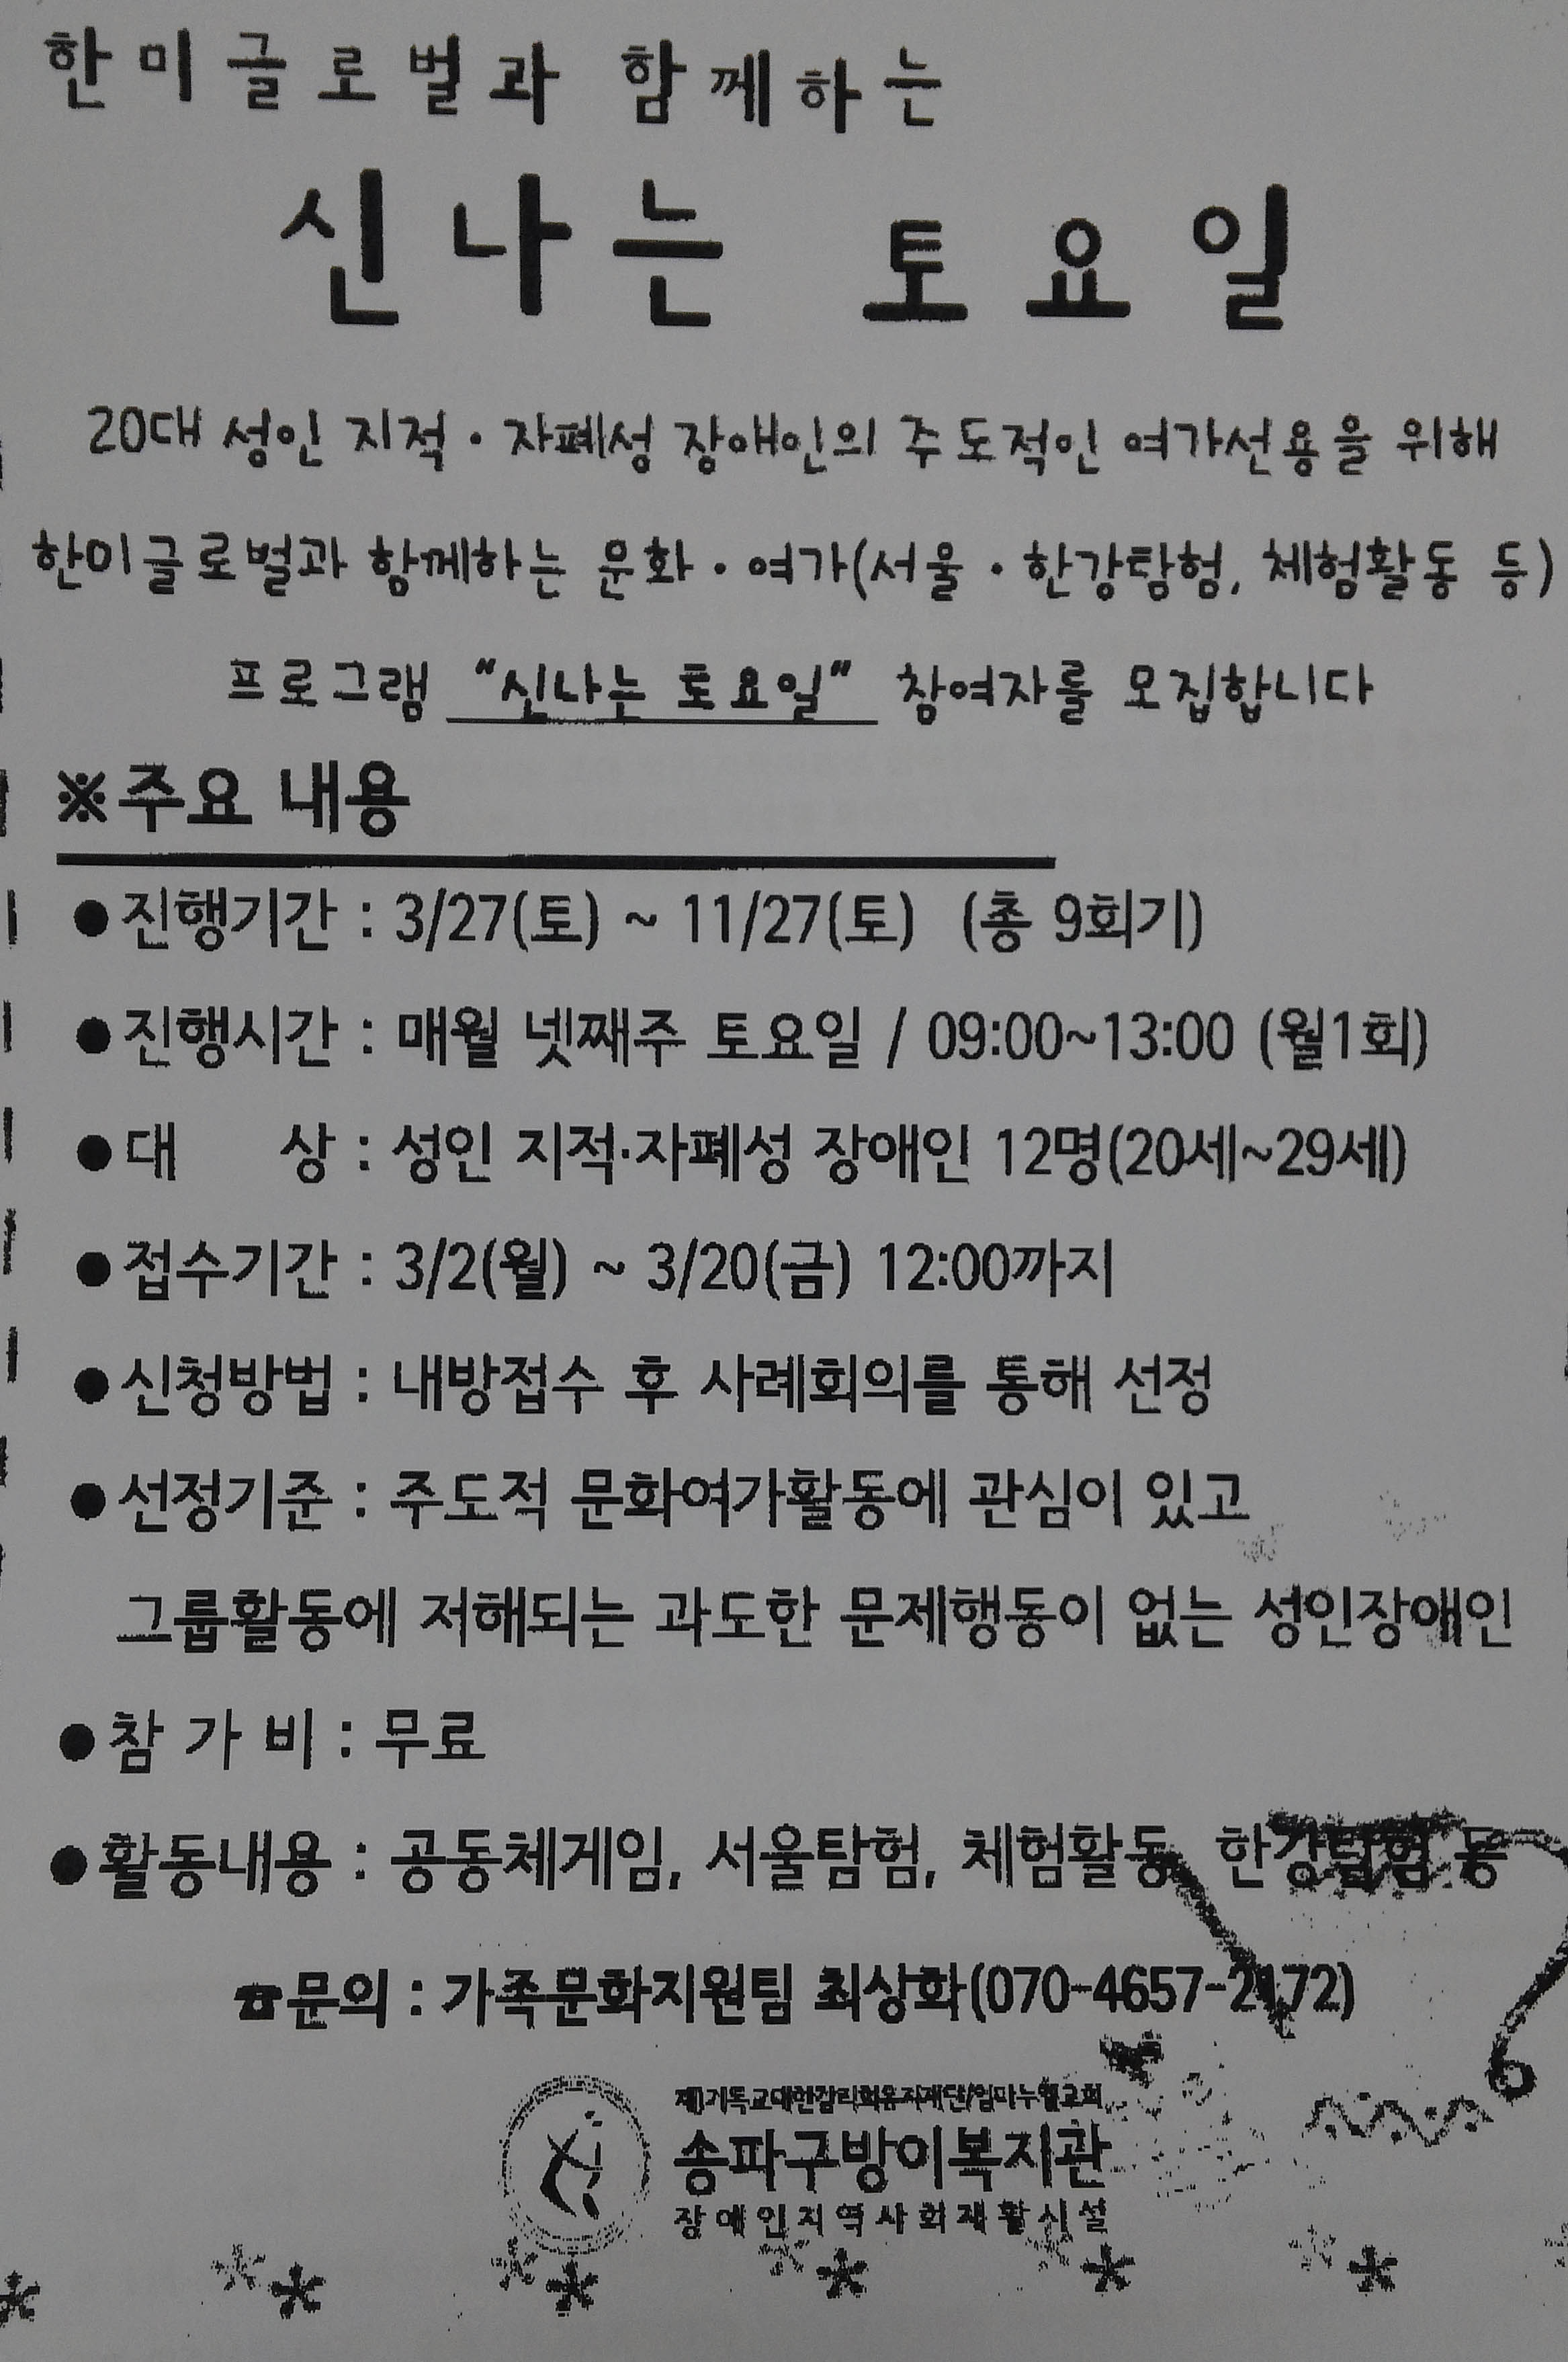 한미글로벌과 함께하는
신나는 토요일
20대 성인 지적·자폐성 장애인의 주도적인 여가선용을 위해
한미글로벌과 함께하는 문화·여가(서울·한강탐험, 체험활동 등)
프로그램 "신나는 토요일" 참여자를 모집합니다
※주요 내용
●진행기간 : 3/27(토) ~ 11/27(토) (총 9회기)
●진행시간 : 매월 넷째주 토요일 / 09:00~13:00 (월1회)
●대 상 : 성인 지적·자폐성 장애인 12명(20세~29세)
●접수기간 : 3/2(월) ~ 3/20(금) 12:00까지
●신청방법 : 내방접수 후 사례회의를 통해 선정
●선정기준 : 주도적 문화여가활동에 관심이 있고
그룹활동에 저해되는 과도한 문제행동이 없는 성인장애인
●참 가 비 : 무료
●활동내용 : 공동체게임, 서울탐험, 체험활동, 한강탐험 등
☎문의 : 가족문화지원팀 최상화(070-4657-2172)
송파구방이복지관
장애인지역사회재활시설